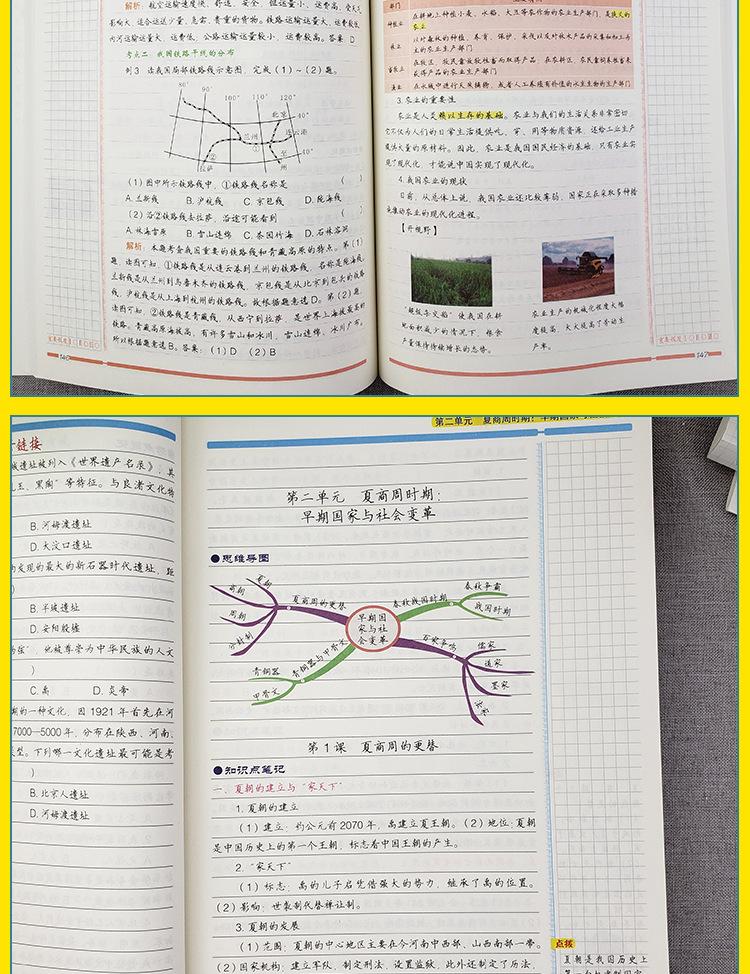 解析: 航空运输速度快、舒适、安全, 但运量小、运费高, 受天气
影响大, 适合运送少量、急需、贵重的货物。铁路运输运量大、运费较低
内河运输运量大, 运费低, 公路运输运量较小, 运费较高。答案: D
考点二 我国铁路干线的分布
例3 读我国局部铁路线示意图, 完成(1)~(2)题。
80° 90° 100° 110° 北京
40° 兰州 连云港 40°
① ② 拉萨 州
(1)图中所示铁路线中, ①铁路线名称是 ( )
A. 兰新线 B. 沪杭线 C. 京包线 D. 陇海线
(2)沿②铁路线去拉萨, 沿途可能看到 ( )
A. 林海雪原 B. 雪山连绵 C. 茶园竹海 D. 石林溶洞
解析: 本题考查我国重要的铁路线和青藏高原的特点。第(1)
题, 读图可知, ①铁路线是从连云港到兰州的铁路线, 名称是陇海线,
兰新线是从兰州到乌鲁木齐的铁路线, 京包线是从北京到包头的铁路
线, 沪杭线是从上海到杭州的铁路线。故根据题意选D。第(2)题,
读图可知, ②铁路线是青藏线, 从西宁到拉萨, 是世界上海拔最高的
铁路。青藏高原海拔高, 有许多雪山和冰川, 雪山连绵, 冰川广布。
所以根据题意选B。答案: (1)D (2)B
146
部门
种植业 在耕地上种植小麦、水稻、大豆等农作物的农业生产部门, 是狭义的
农业
林业 以对森林的种植、养育、保护、采伐以及对林木产品的采集和加工为
主的农业生产部门
畜牧业
获得产品的农业生产部门
渔业 在水域中进行天然捕捞, 或者人工养殖有价值的水生生物的生产部门
3. 农业的重要性
农业是人类赖以生存的基础。农业与我们的生活关系非常密切,
它不仅为人们的日常生活提供吃、穿、用等物质资源, 还给工业生产
提供大量的原材料。因此, 农业是我国国民经济的基础, 只有农业实
现了现代化, 才能说中国实现了现代化。
4. 我国农业的现状
目前, 从总体上说, 我国农业还比较薄弱, 国家正在采取多种措
施推动农业的现代化进程。
【开视野】
"超级杂交稻"使我国在耕
地面积减少的情况下, 粮食
产量保持持续增长的态势。
农业生产的机械化程度大幅
度提高, 大大提高了劳动生
产率。
147
链接
城遗址被列入《世界遗产名录》, 其
玉、黑陶"等特征。与良渚文化特
B. 河姆渡遗址
D. 大汶口遗址
发现的最大的新石器时代遗址, 距
)
B. 半坡遗址
D. 安阳殷墟
他被尊崇为中华民族的人文
)
C. 禹 D. 炎帝
期的一种文化, 因1921年首先在河
7000—5000年, 分布在陕西、河南、
型。下列哪一文化遗址最可能是考
)
B. 北京人遗址
D. 河姆渡遗址
第二单元 夏商周时期:
第二单元 夏商周时期:
早期国家与社会变革
●思维导图
夏朝
商朝
周朝
分封制
夏商周的更替
青铜器
甲骨文
青铜器与甲骨文
早期国
家与社
会变革
春秋战国时期
春秋争霸
战国时期
百家争鸣
儒家
道家
墨家
法家
第1课 夏商周的更替
●知识点笔记
一、夏朝的建立与"家天下"
1. 夏朝的建立
(1)建立: 约公元前2070年, 禹建立夏王朝。(2)地位: 夏朝
是中国历史上的第一个王朝, 标志着中国王朝的产生。
2. "家天下"
(1)标志: 禹的儿子启凭借强大的势力, 继承了禹的位置。
(2)影响: 世袭制代替禅让制。
3. 夏朝的发展
(1)范围: 夏朝的中心地区主要在今河南中西部、山西南部一带。
(2)国家机构: 建立军队, 制定刑法, 设置监狱, 此外还制定了历法,
点拨
夏朝是我国历史上